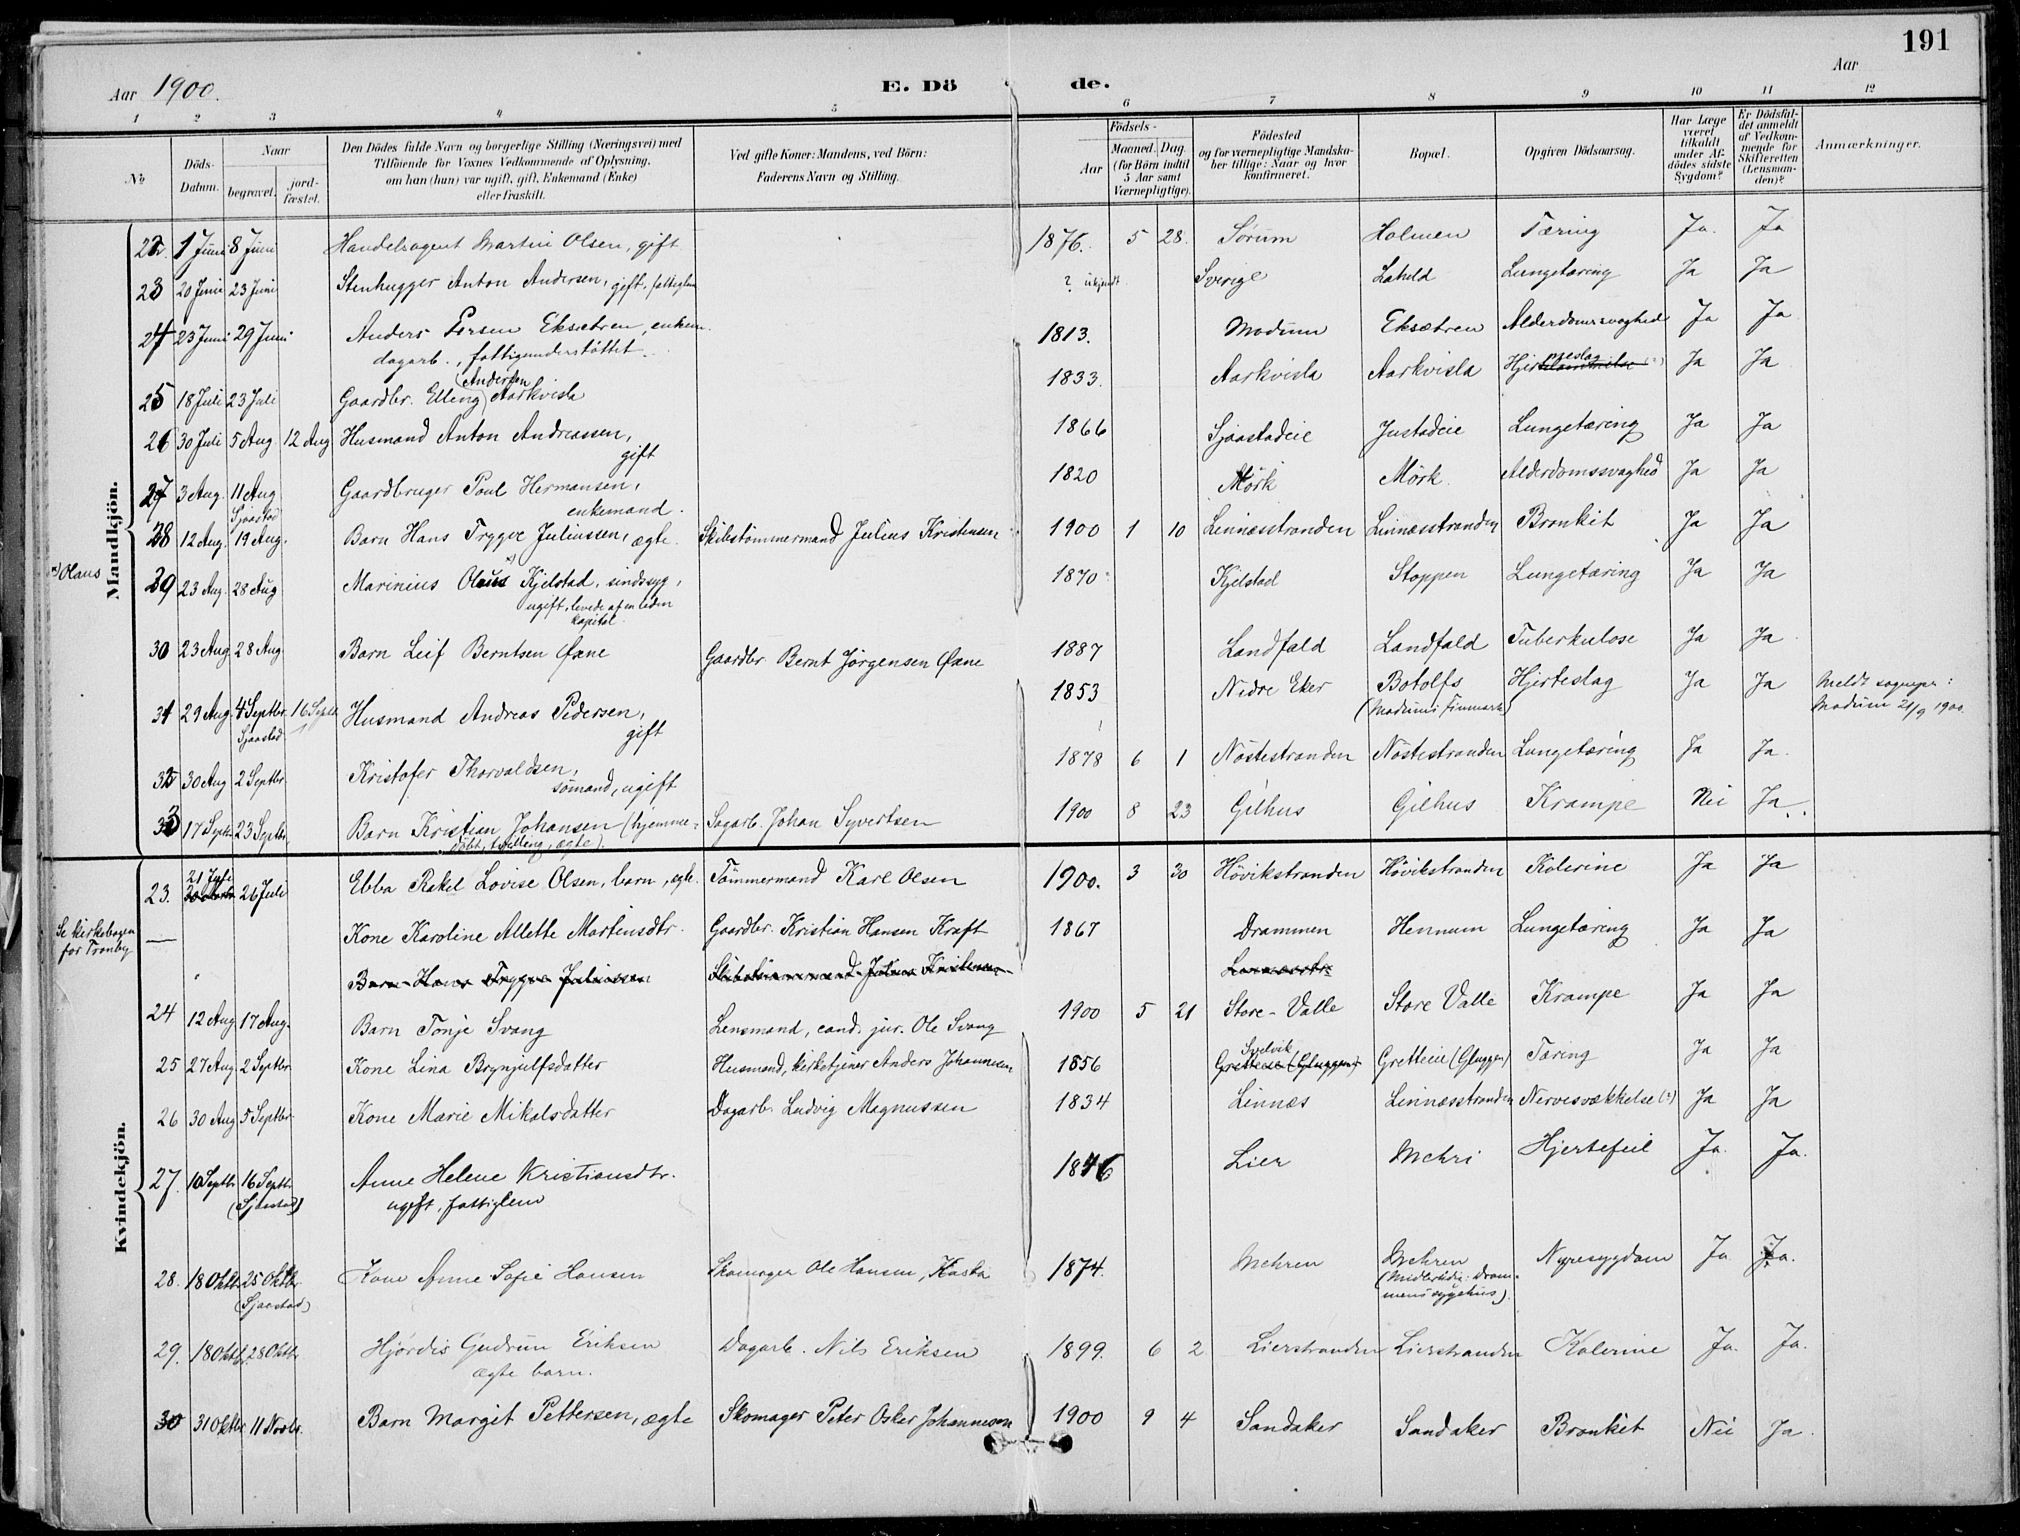 191
Aar 1900. E. Dö de. Aar
1 2 3 4 5 6 7 8 9 10 11 12
№
Döds-Datum.
Naar
begravet. jord-fæstet.
Den Dödes fulde Navn og borgerlige Stilling (Næringsvei) med
Tilföiende for Voxnes Vedkommende af Oplysning,
om han (hun) var ugift, gift, Enkemand (Enke)
eller fraskilt.
Ved gifte Koner: Mandens, ved Börn:
Faderens Navn og Stilling.
Födsels-
Aar Maaned. Dag.
(for Börn indtil
5 Aar samt
Værnepligtige).
Födested
og for værnepligtige Mandska-
ber tillige: Naar og hvor
konfirmeret.
Bopæl.
Opgiven Dödsaarsag.
Har Læge
været
tilkaldt
under Af-
dödes sidste
Sygdom?
Er Dödsfal-
det anmeldt
af Vedkom-
mende for
Skifteretten
(Lensman-
den)?
Anmærkninger.
Mandkjön.
22. 1 Juni 8 Juni Handelsagent Martin Olsen, gift 1876. 5 28. Sörum Holmen Tæring Ja. Ja
23 20 Juni 23 Juni Stenhugger Anton Andersen, gift, fattiglem ? ukjendt Sverige Laheld Lungetæring Ja Ja
24 23 Juni 29 Juni Anders Persen Eksætren, enkem. 1813. Modum Eksætren Alderdomssvaghed Ja Ja
dagarb., fattigunderstöttet
25 18 Juli 23 Juli Gaardbr. Elling (Andersen) Aarkvisla 1833. Aarkvisla Aarkvisla Hjerteslag Ja Ja
26 30 Juli 5 Aug. 12 Aug Husmand Anton Andreassen, 1866 Sjaastadeie Justadeie Lungetæring Ja Ja
gift
27 3 Aug. 11 Aug Gaardbruger Poul Hermansen, 1820 Mörk Mörk. Alderdomssvaghed Ja Ja
Sjaastad enkemand.
28 12 Aug. 19 Aug. Barn Hans Trygve Juliussen, ægte. Skibstömmermand Julius Kristensen 1900 1 10 Linnæsstranden Linnæsstranden Bronkit Ja Ja
x) Olaus
29 23 Aug. 28 Aug Marinius Olaus x) Kjelstad, sindssyg, 1870 Kjelstad Stoppen Lungetæring Ja Ja
ugift, levede af en liden
kapital.
30 23 Aug 28 Aug Barn Leif Berntsen Öxne Gaardbr. Bernt Jörgensen Öxne 1887 Landfald Landfald Tuberkulose Ja Ja
31 29 Aug. 4 Septbr. 16 Septbr Husmand Andreas Pedersen, 1853 Nedre Eker Botolfs Hjerteslag Ja Ja Meldt sognepr. :
Sjaastad gift (Modums Finmark) Modum 21/9 1900.
32 30 Aug 2 Septbr. Kristofer Thorvaldsen, 1878 6 1 Nöstestranden Nöstestranden Lungetæring Ja Ja.
sömand, ugift
33 17 Septbr 23 Septbr. Barn Kristian Johansen (hjemme- Sagarb. Johan Syvertsen 1900 8 23 Gilhus Gilhus Krampe Nei Ja.
döbt, tvilling, ægte).
Kvindekjön.
23. 21 Juli 26 Juli Ebba Rakel Lovise Olsen, barn, ægte. Tömmermand Karl Olsen 1900. 3 30 Hövikstranden Hövikstranden Kolerine Ja Ja
Se kirkebogen
for Tranby
— Kone Karoline Allette Martinsdtr. Gaardbr. Kristian Hansen Kraft 1867 Drammen Hennum Lungetæring Ja Ja
Barn Hans Trygve Juliussen Skibstömmermand Julius Kristensen Linnæsstr.
24 12 Aug 17 Aug. Barn Tonje Svang Lensmand, cand. jur. Ole Svang 1900 5 21 Store-Valle Store Valle Krampe Ja Ja
25 27 Aug 2 Septbr. Kone Lina Brynjulfsdatter Husmand, kirketjener Anders Johannesen 1856 Svelvik Gretteeie (Gluggen) Gretteeie (Gluggen) Tæring Ja Ja
26 30 Aug 5 Septbr. Kone Marie Mikalsdatter Dagarb. Ludvig Magnussen 1834 Linnæs Linnæsstranden Nervesvækkelse (?) Ja Ja
27. 10 Septbr. 16 Septbr. Anne Helene Kristiansdtr. 1846 Lier Mehri Hjertefeil Ja. Ja.
(Sjaastad) ugift, fattiglem
28. 18 Oktbr. 25 Oktbr. Kone Anne Sofie Hansen Skomager Ole Hansen, Kuska 1874. Mehren Mehren Nyresygdom Ja Ja.
(Sjaastad) (Midlertidig: Dram-
mens sygehus).
29. 18 Oktbr. 28 Oktbr Hjördis Gudrun Eriksen Dagarb. Nils Eriksen 1899. 6 2 Lierstranden Lierstranden Kolerine Ja. Ja.
ægte barn.
30 31 Oktbr. 11 Novbr. Barn Margit Pettersen, ægte Skomager Peter Oskar Johannesen 1900 9 4 Sandaker Sandaker Bronkit Nei Ja.